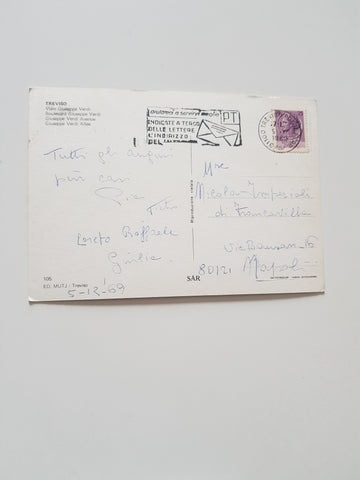 TREVISO
Viale Giuseppe Verdi
Boulevard Giuseppe Verdi
Giuseppe Verdi Avenue
Giuseppe Verdi Allee
aiutateci a servirvi meglio
PT
INDICATE A TERGO
DELLE LETTERE
L'INDIRIZZO
DEL
Tutti gli auguri
più cari
Pia
Tito
Loreto Raffaele
Giulia
5-12-69
Nicola Imperiali
di Francavilla
Via
80121 Napoli
Riproduzione vietata
105
ED. MUTJ - Treviso
SAR